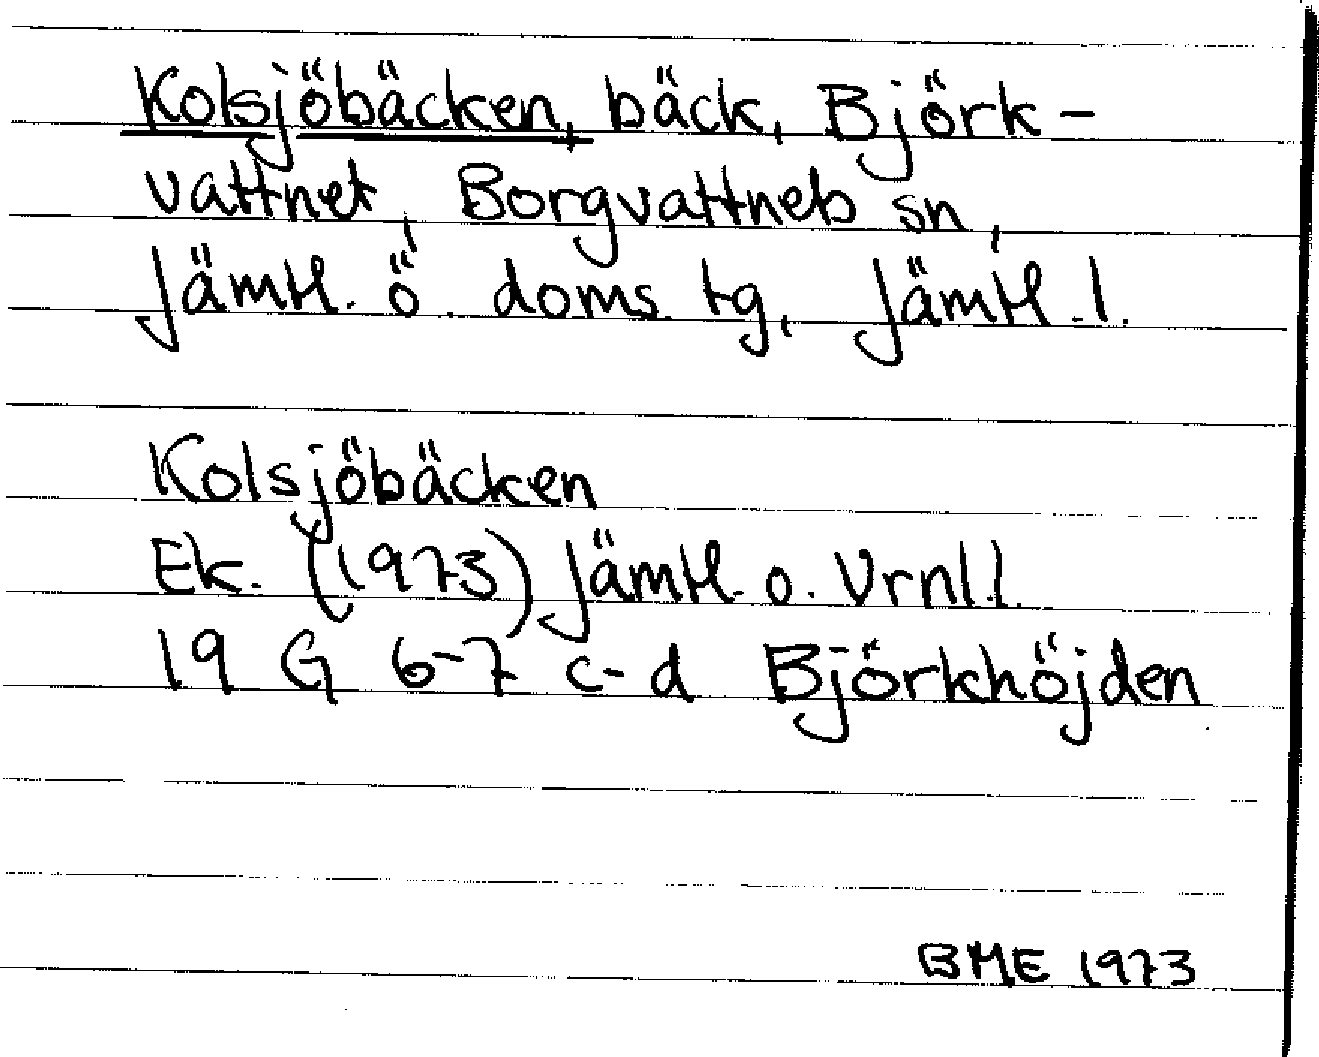 Kolsjöbäcken, bäck, Björk-
vattnet, Borgvattnets sn,
Jämtl. ö. doms. tg, Jämtl. l.
Kolsjöbäcken
Ek. (1973) Jämtl. o. Vrnl.l.
19 G 6-7 c-d Björkhöjden
BME 1973